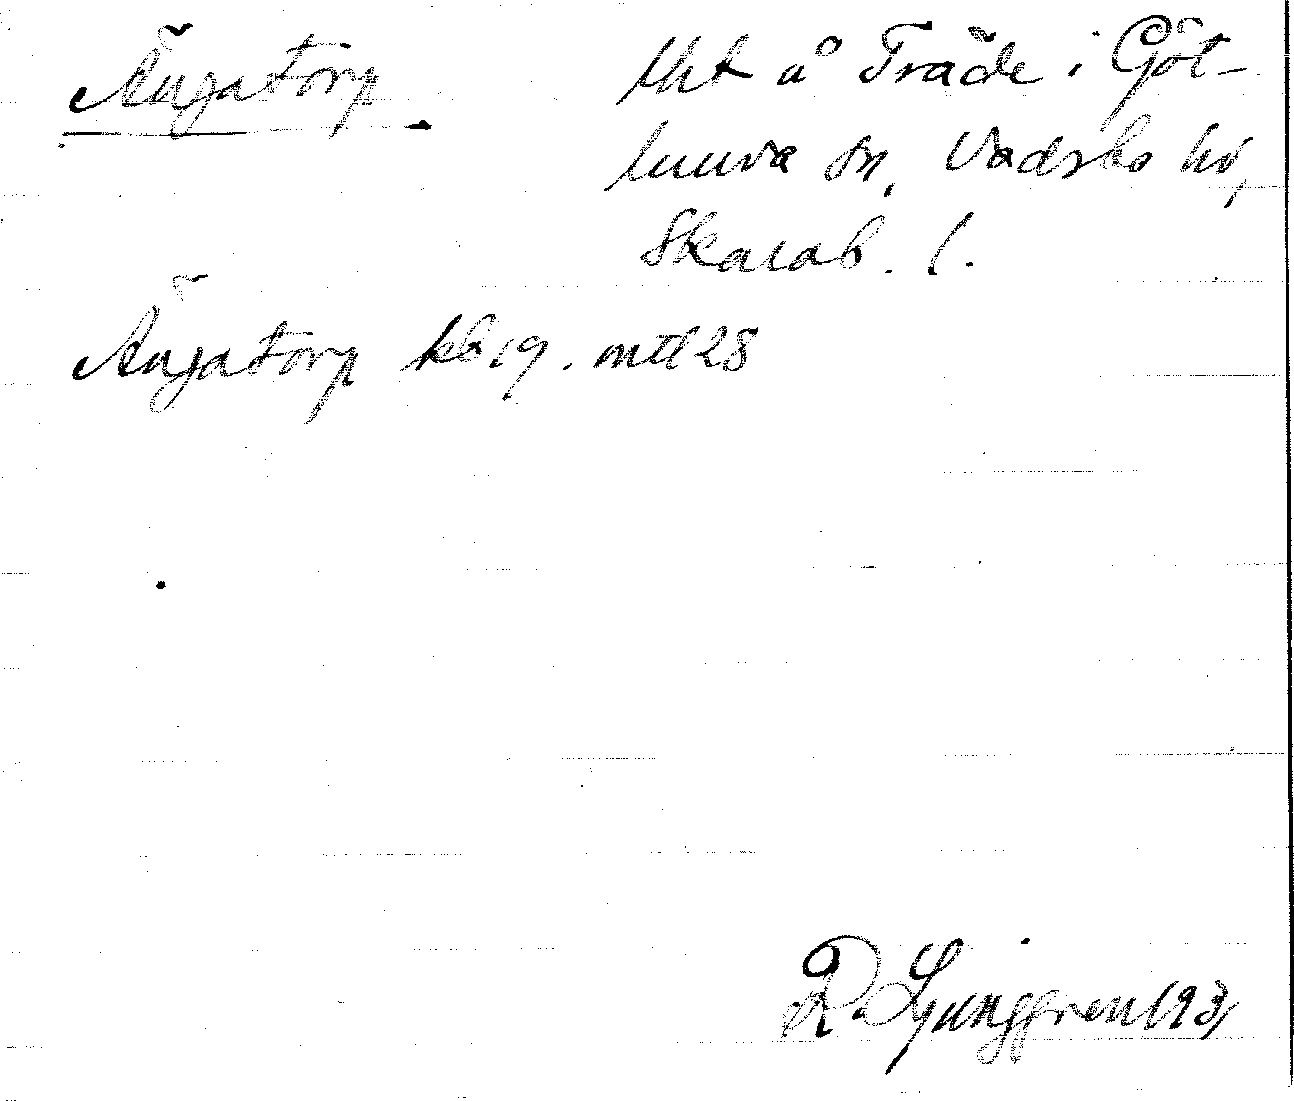 Ängatorp
Utt å Träde i Göt-
lunda sn, Vadsbo hd,
Skarab. l.
Ängatorp kb 19. mtl 28
R. Ljunggren 1931